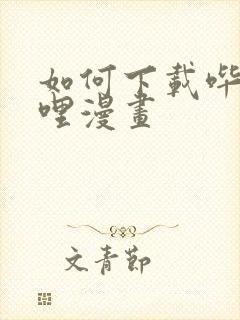 如何下載哔
哩漫畫
文青節